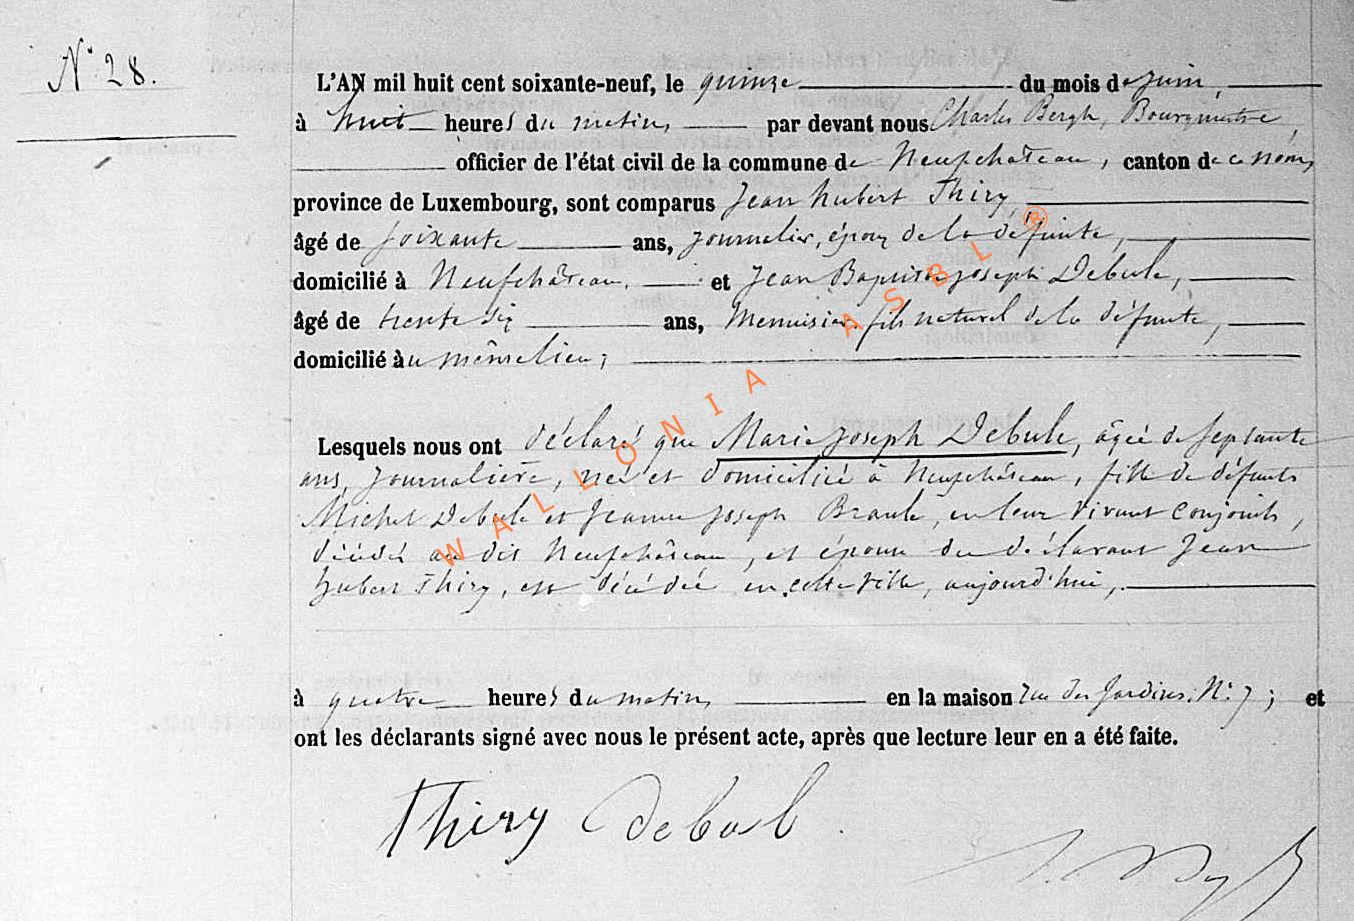 N° 28.
L'AN mil huit cent soixante-neuf, le quinze du mois de juin,
à huit heures du matin, par devant nous Charles Bergh, Bourgmestre,
officier de l'état civil de la commune de Neufchâteau, canton de ce nom,
province de Luxembourg, sont comparus Jean hubert Thiry,
âgé de soixante ans, journalier, époux de la défunte,
domicilié à Neufchâteau, et Jean Baptiste joseph Debule,
âgé de trente six ans, Menuisier, fils naturel de la défunte,
domicilié au même lieu;
Lesquels nous ont déclaré que Marie joseph Debule, âgée de septante
ans, journalière, née et domiciliée à Neufchâteau, fille de défunts
Michel Debule et Jeanne joseph Braule en leur vivant conjoints,
décédés au dit Neufchâteau, et épouse du déclarant Jean
hubert Thiry, est décédée en cette ville, aujourd'hui,
à quatre heures du matin, en la maison rue des Jardins, N° 7; et
ont les déclarants signé avec nous le présent acte, après que lecture leur en a été faite.
Thiry Debul
WALLONIA ASBL ®